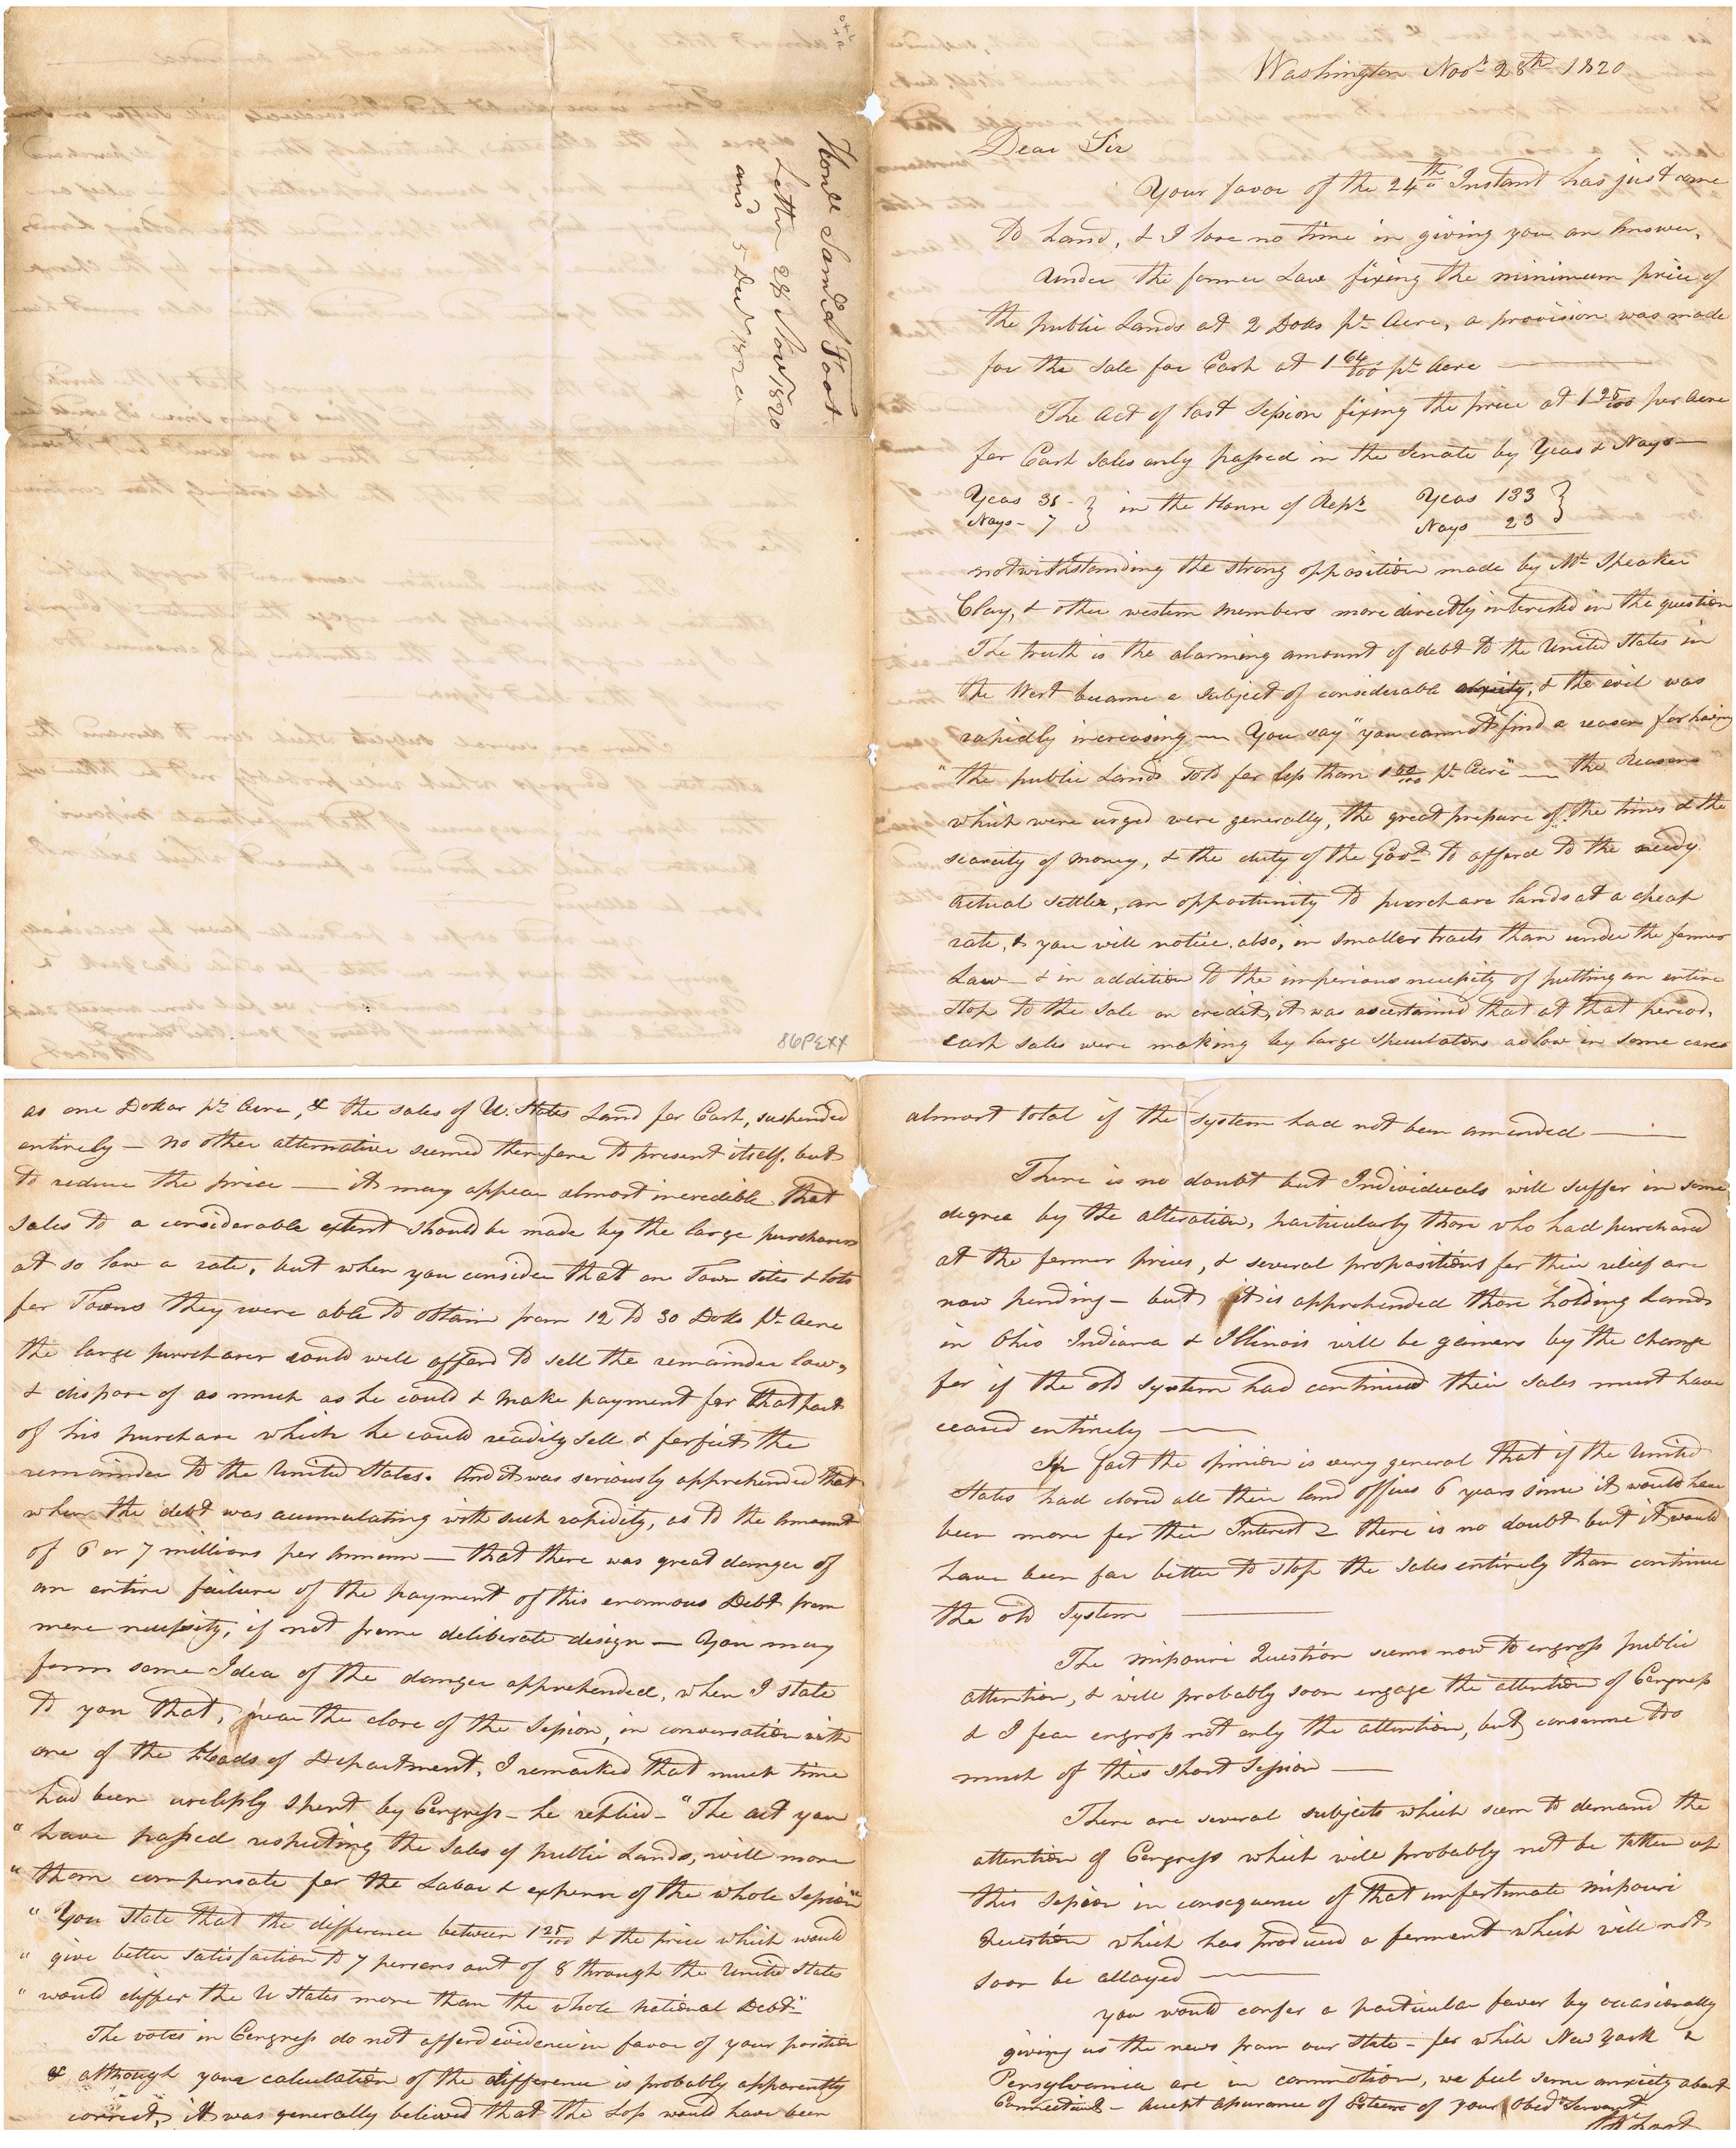 Honble Saml A Foot.
Letter 28 Novr 1820
and 5 Decr 1820
86PEXX
Washington Novr 28th 1820
Dear Sir
Your favor of the 24th Instant has just come
to hand, & I lose no time in giving you an answer,
Under the former Law fixing the minimum price of
the public Lands at 2 Dolls pr Acre, a provision was made
for the sale for Cash at 1 64/100 pr Acre
The act of last Session fixing the price at 1 25/100 per Acre
for Cash sales only passed in the Senate by Yeas & Nays—
Yeas 31 - } in the House of Reps Yeas 133 }
Nays - 7 } Nays 23 }
notwithstanding the strong opposition made by Mr Speaker
Clay, & other western members more directly interested in the question
The truth is the alarming amount of debt to the United States in
the West became a subject of considerable anxiety, & the evil was
rapidly increasing — You say "you cannot find a reason for having
"the public Lands sold for less than 1 64/100 pr Acre" — the Reasons
which were urged were generally, the great pressure of the times & the
scarcity of money, & the duty of the Govt to afford to the needy
actual settler, an opportunity to purchase lands at a cheap
rate, & you will notice also, in smaller tracts than under the former
Law — & in addition to the imperious necessity of putting an entire
stop to the sale on credit, it was ascertained that at that period,
cash sales were making by large speculators as low in some cases
as one Dollar pr Acre, & the sales of U. States Land for Cash, suspended
entirely — no other alternative seemed therefore to present itself, but
to reduce the price — it may appear almost incredible that
sales to a considerable extent should be made by the large purchasers
at so low a rate, but when you consider that on Town sites & lots
for Towns they were able to obtain from 12 to 30 Dolls pr Acre
the large purchaser could well afford to sell the remainder low,
& dispose of as much as he could & make payment for that part
of his purchase which he could readily sell & forfeit the
remainder to the United States. And it was seriously apprehended that
when the debt was accumulating with such rapidity, as to the amount
of 6 or 7 millions per Annum — that there was great danger of
an entire failure of the payment of this enormous Debt from
mere necessity, if not from deliberate design — You may
form some Idea of the danger apprehended, when I state
to you that, near the close of the Session, in conversation with
one of the Heads of Department, I remarked that much time
had been uselessly spent by Congress — he replied — "The act you
"have passed respecting the sales of public Lands, will more
"than compensate for the Labor & expense of the whole Session"
"You state that the difference between 1 25/100 & the price which would
"give better satisfaction to 7 persons out of 8 through the United States
"would differ the U States more than the whole national Debt"
The votes in Congress do not afford evidence in favor of your position
& although your calculation of the difference is probably apparently
correct, it was generally believed that the Loss would have been
almost total if the system had not been amended —
There is no doubt but Individuals will suffer in some
degree by the alteration, particularly those who had purchased
at the former prices, & several propositions for their relief are
now pending — but it is apprehended those holding Lands
in Ohio Indiana & Illinois will be gainers by the change
for if the old system had continued their sales must have
ceased entirely —
In fact the opinion is very general that if the United
States had closed all their land offices 6 years since it would have
been more for their Interest & there is no doubt but it would
have been far better to stop the sales entirely than continue
the old system —
The Missouri Question seems now to engross public
attention, & will probably soon engage the attention of Congress
& I fear engross not only the attention, but consume too
much of this short Session —
There are several subjects which seem to demand the
attention of Congress which will probably not be taken up
this Session in consequence of that unfortunate Missouri
Question which has produced a ferment which will not
soon be allayed —
you would confer a particular favor by occasionally
giving us the news from our State — for while New York &
Pensylvania are in commotion, we feel some anxiety about
Connecticut — accept assurance of Esteem of your Obedt Servant